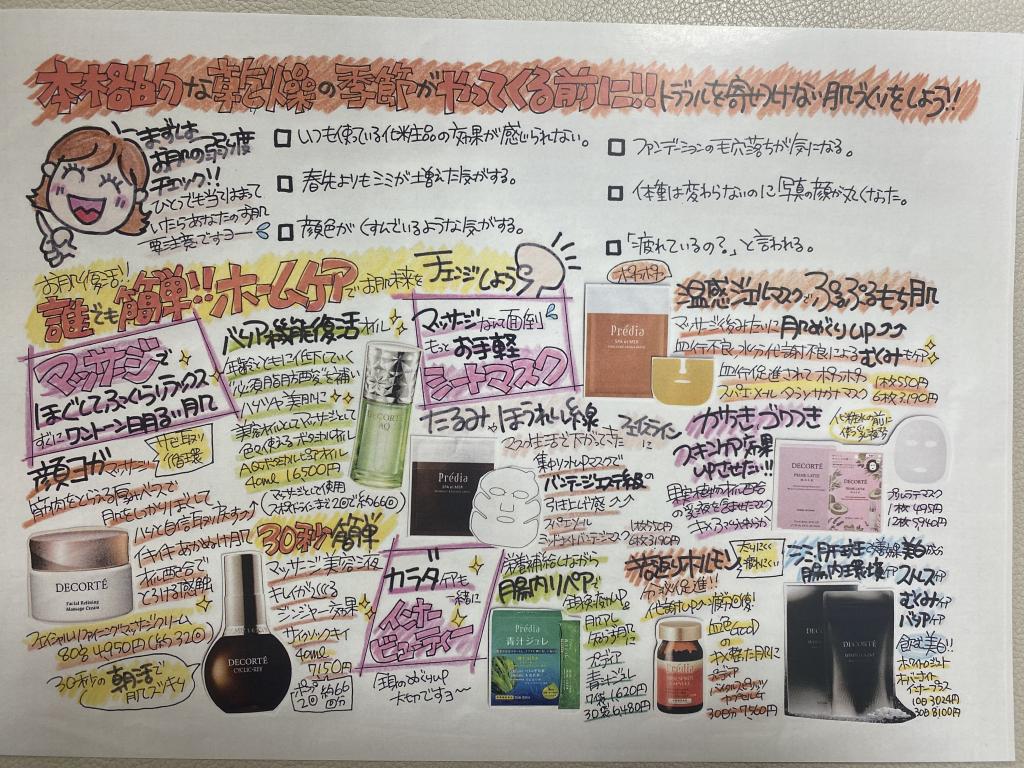 本格的な乾燥の季節がやってくる前に!! トラブルを寄せつけない肌づくりをしよう!!
まずは
お肌の弱り度
チェック!!
ひとつでも当てはまって
いたらあなたのお肌
要注意ですヨー
□ いつも使っている化粧品の効果が感じられない。
□ 春先よりもシミが増えた気がする。
□ 顔色がくすんでいるような気がする。
□ ファンデーションの毛穴落ちが気になる。
□ 体重は変わらないのに写真の顔が丸くなった。
□ 「疲れているの?」と言われる。
お肌復活!
誰でも簡単!! ホームケアでお肌未来を
チェンジしよう
マッサージで
ほぐしてふっくらリラックス
すぐにワントーン明るい肌
バリア機能復活オイル
年齢とともに低下していく
必須脂肪酸を補い
ハリツヤ美肌に
美容オイルとマッサージとして
40ml 16,500円
DECORTÉ
AQ
マッサージなんて面倒
もっとお手軽
シートマスク
ポカポカ
Prédia
SPA et MER
温感ジェルマスクでぷるぷるもち肌
マッサージ後みたいに肌めぐりUP
血行不良、水分代謝不良によるむくみもケア
血行促進されてポカポカ
スパ・エ・メール
1枚550円
6枚3,190円
顔ヨガマッサージ
筋肉をとらえる厚みベースで
肌をしっかりほぐして
ハリと自信あふれるすっぴん
とろける感触
DECORTÉ
Facial Refining
Massage Cream
フェイシャル リファイニング マッサージクリーム
80g 4,950円(約32回)
30秒の朝活で
肌スッキリ
30秒簡単
マッサージ美容液
キレイがつくる
ジンジャー効果
サイクリックキイ
40ml
7,150円
DECORTÉ
CYCLIC-KEY
たるみやほうれい線
マスク生活で下がってきた
フェイスラインに
集中リフトUPマスクで
バンテージエステ級の
引き上げ感
スパ・エ・メール
1枚550円
6枚3,190円
Prédia
SPA et MER
かわつき、ごわつき
スキンケア効果
UPさせたい!!
化粧水の前に
使う乳液
DECORTÉ
PRIME LATTE
MASK
プリムラテ マスク
1枚495円
12枚5,940円
カラダケアも
一緒に
インナー
ビューティー
全身のめぐりUP
大切ですヨ〜
栄養補給しながら
腸内リペア
Prédia
青汁ジュレ
プレディア
青汁ジュレ
7袋 1,620円
30袋 6,480円
若返りホルモン
分泌促進!!
代謝UP 疲労回復
血色Good
Prédia
30日分 7,560円
シミ、肝斑の改善
腸内環境ケア
美白
ストレスケア
むくみケア
バリアケア
食べる美白!!
ホワイトロジスト
ネオバイトライト
インナープラス
10日 3,024円
30日 8,100円
DECORTÉ